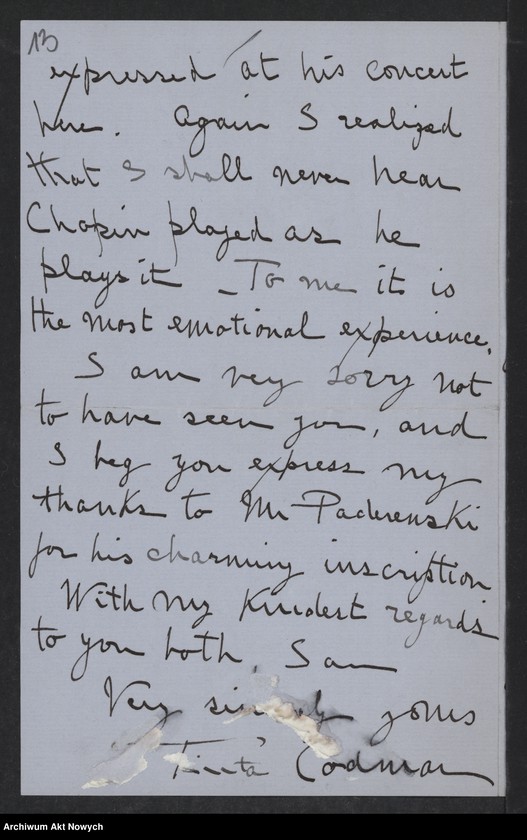 13
expressed at his concert
here. Again I realized
that I shall never hear
Chopin played as he
plays it _ To me it is
the most emotional experience.
I am very sorry not
to have seen you, and
I beg you express my
thanks to Mr Paderewski
for his charming inscription
With my kindest regards
to you both, I am
Very yours
Codman
Archiwum Akt Nowych